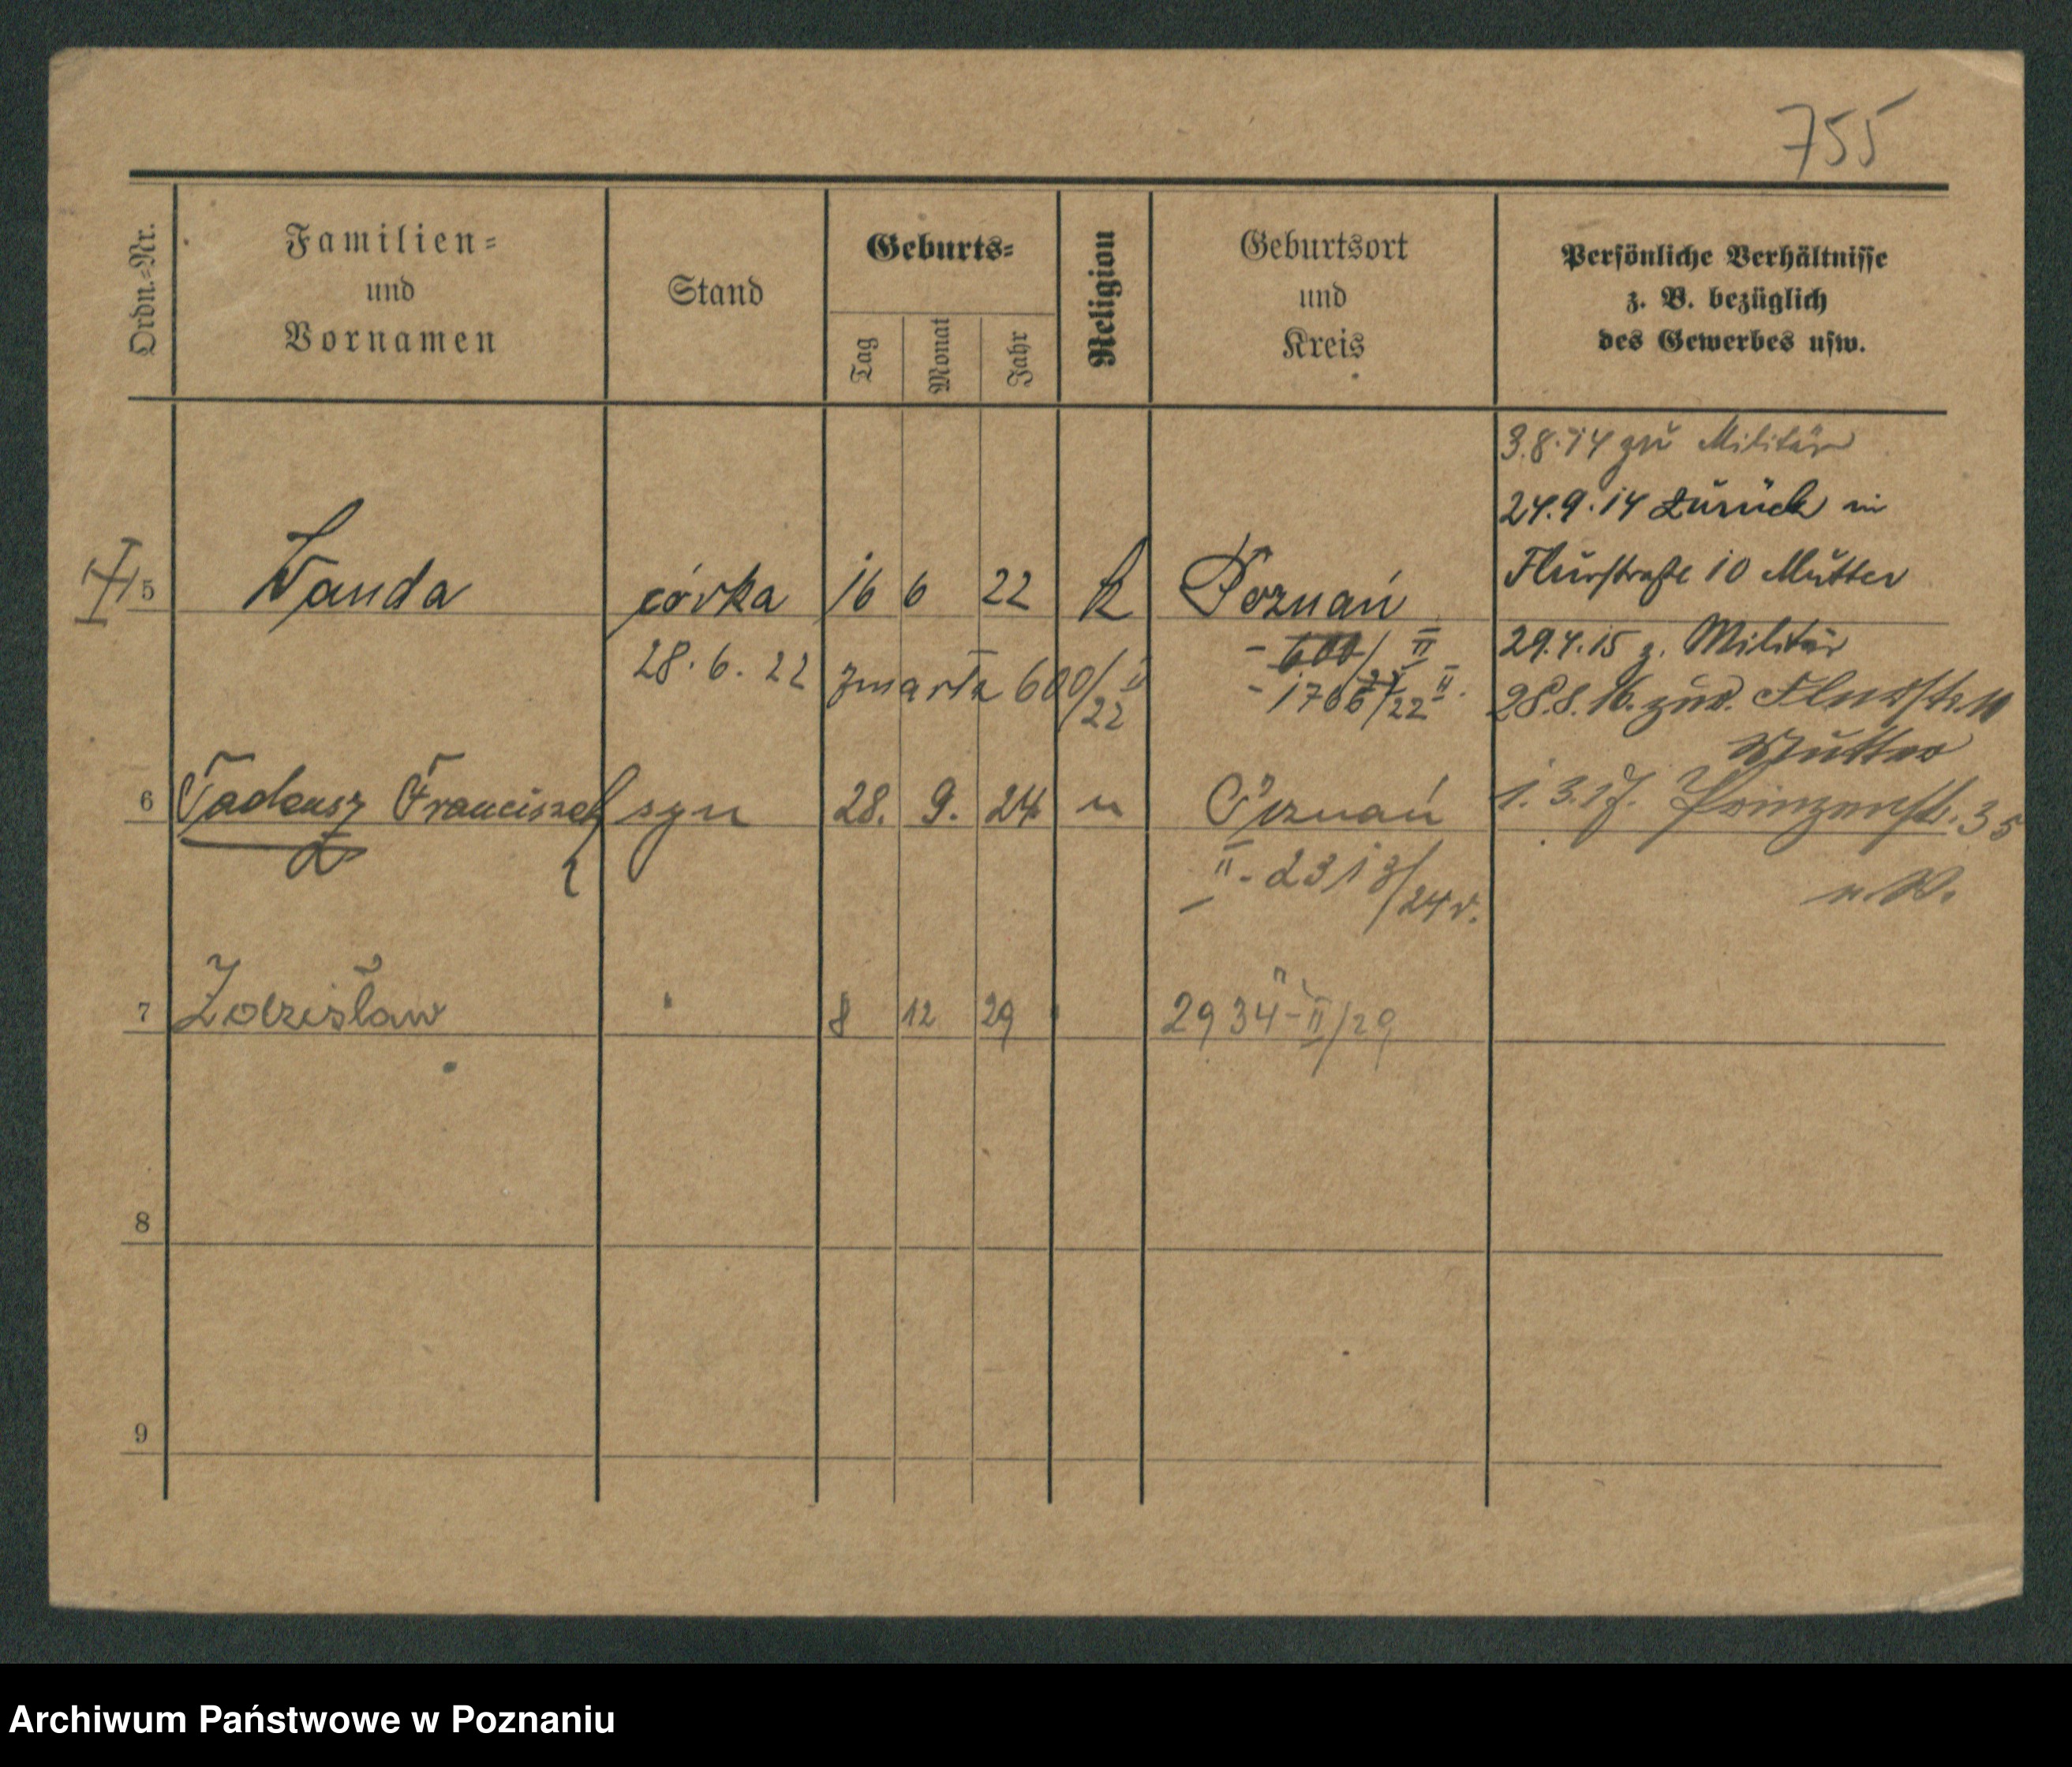 755
Ordn.=Nr.
Familien=
und
Vornamen
Stand
Geburts=
Tag
Monat
Jahr
Religion
Geburtsort
und
Kreis
Persönliche Verhältnisse
z. B. bezüglich
des Gewerbes usw.
3.8.14 zu Militär
24.9.14 zurück in
Flurstraße 10 Mutter
5 Wanda córka 16 6 22 k Poznań
28.6.22 zmarła 600/22 II
- 600/22 II
- 1706/22 II.
29.4.15 z. Militär
28.8.16. zur. Flurstr. 10
Mutter
6 Tadeusz Franciszek syn 28. 9. 24 " Poznań
1.3.17. Prinzenstr. 35
II - 2313/24 r.
7 Zdzisław " 8 12 29 " "
2934-II/29
8
9
Archiwum Państwowe w Poznaniu